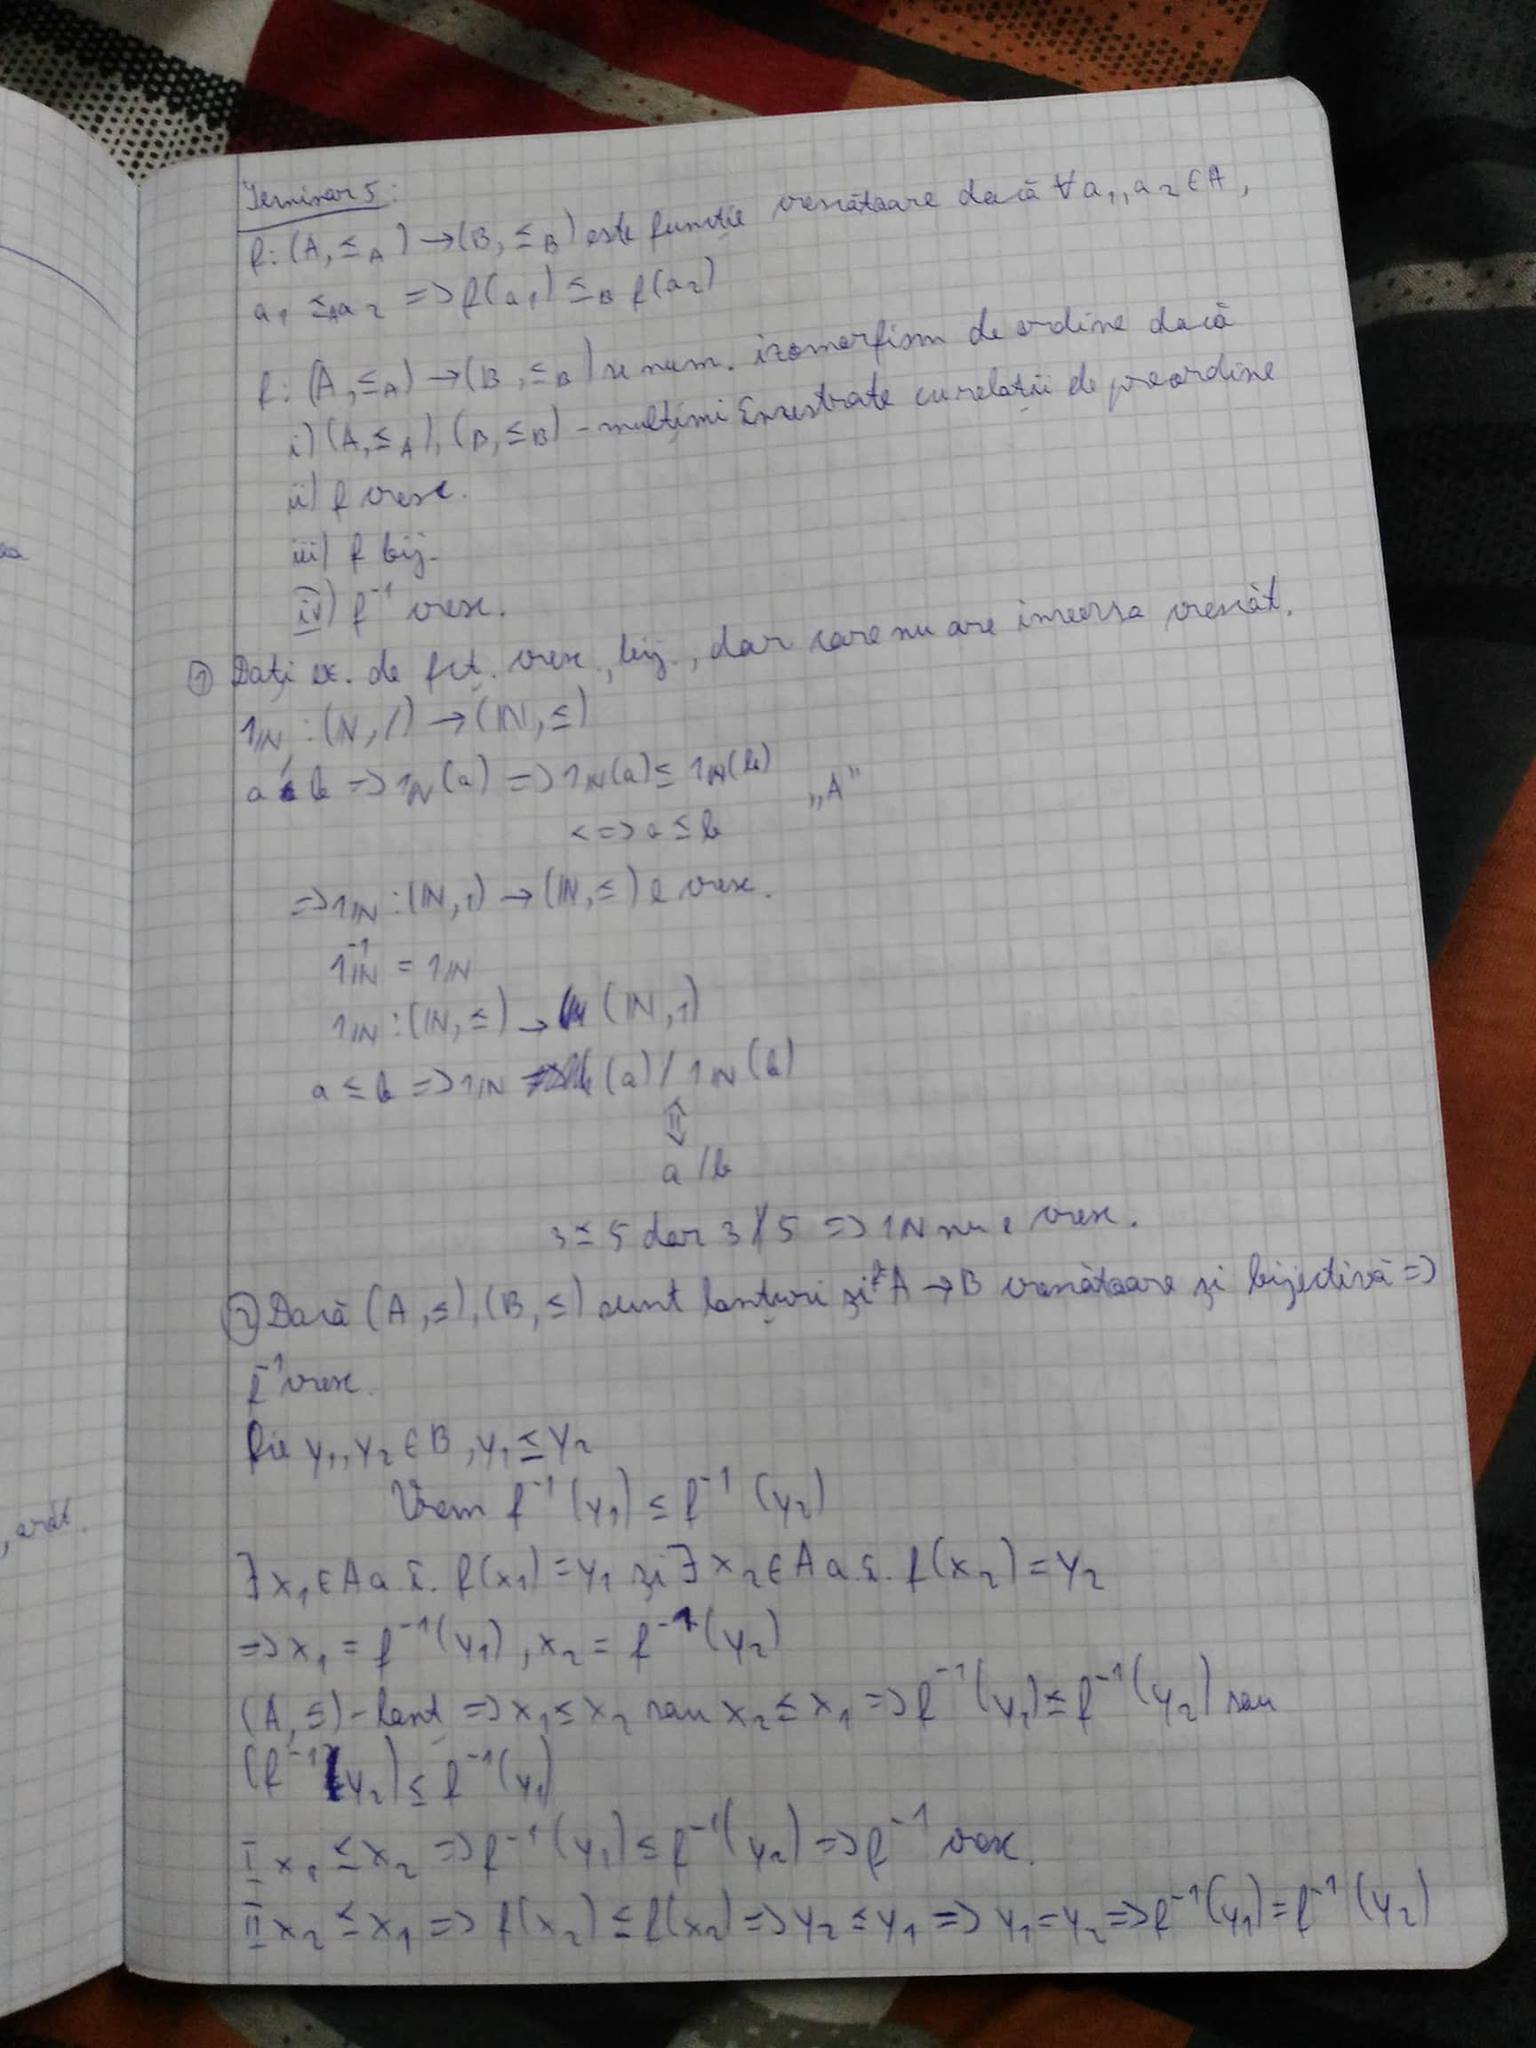 Seminar 5:
f: (A, ≤A) → (B, ≤B) este funcție crescătoare dacă ∀ a1, a2 ∈ A,
a1 ≤A a2 => f(a1) ≤B f(a2)
f: (A, ≤A) → (B, ≤B) se num. izomorfism de ordine dacă
i) (A, ≤A), (B, ≤B) - mulțimi înzestrate cu relații de preordine
ii) f cresc.
iii) f bij.
iv) f⁻¹ cresc.
① Dați ex. de fct. cresc., bij., dar care nu are inversa crescăt.
1ℕ : (ℕ, /) → (ℕ, ≤)
a / b => 1ℕ(a) => 1ℕ(a) ≤ 1ℕ(b) „A"
<=> a ≤ b
=> 1ℕ : (ℕ, |) → (ℕ, ≤) e cresc.
1ℕ⁻¹ = 1ℕ
1ℕ : (ℕ, ≤) → (ℕ, |)
a ≤ b => 1ℕ (a) / 1ℕ (b)
⇕
a / b
3 ≤ 5 dar 3 ∤ 5 => 1ℕ nu e cresc.
② Dacă (A, ≤), (B, ≤) sunt lanțuri și f: A → B crescătoare și bijectivă =>
f⁻¹ cresc.
Fie y1, y2 ∈ B, y1 ≤ y2
Vrem f⁻¹(y1) ≤ f⁻¹(y2)
∃ x1 ∈ A a.î. f(x1) = y1 și ∃ x2 ∈ A a.î. f(x2) = y2
=> x1 = f⁻¹(y1), x2 = f⁻¹(y2)
(A, ≤) - lanț => x1 ≤ x2 sau x2 ≤ x1 => f⁻¹(y1) ≤ f⁻¹(y2) sau
(f⁻¹(y2) ≤ f⁻¹(y1)
I x1 ≤ x2 => f⁻¹(y1) ≤ f⁻¹(y2) => f⁻¹ cresc.
II x2 ≤ x1 => f(x2) ≤ f(x2) => y2 ≤ y1 => y1 = y2 => f⁻¹(y1) = f⁻¹(y2)